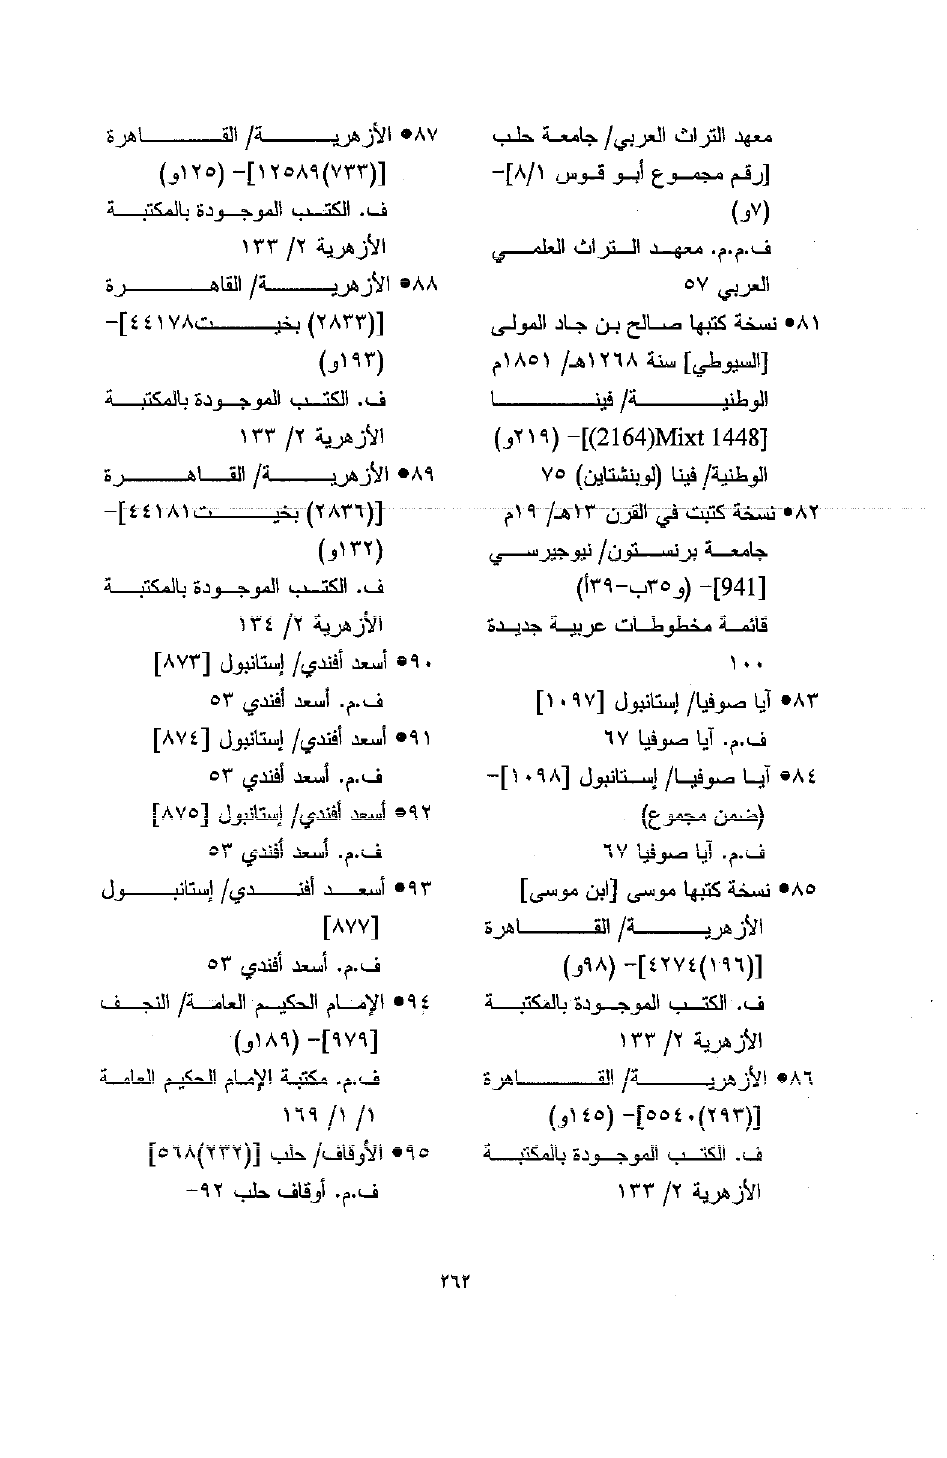 معهد التراث العربي/ جامعة حلب
[رقم مجموع أبو قوس ٨/١]-
(٧و)
ف.م.م. معهد التراث العلمي
العربي ٥٧
٨١● نسخة كتبها صالح بن جاد المولى
[السيوطي] سنة ١٢٦٨هـ/ ١٨٥١م
الوطنية/ فينا
[(2164)Mixt 1448]- (٢١٩و)
الوطنية/ فينا (لوبنشتاين) ٧٥
٨٢● نسخة كتبت في القرن ١٣هـ/ ١٩م
جامعة برنستون/ نيوجيرسي
[941]- (و٣٥ب-٣٩أ)
قائمة مخطوطات عربية جديدة
١٠٠
٨٣● آيا صوفيا/ إستانبول [١٠٩٧]
ف.م. آيا صوفيا ٦٧
٨٤● آيا صوفيا/ إستانبول [١٠٩٨]-
(ضمن مجموع)
ف.م. آيا صوفيا ٦٧
٨٥● نسخة كتبها موسى [ابن موسى]
الأزهرية/ القاهرة
[(١٩٦)٤٢٧٤]- (٩٨و)
ف. الكتب الموجودة بالمكتبة
الأزهرية ٢/ ١٣٣
٨٦● الأزهرية/ القاهرة
[(٢٩٣)٥٥٤٠]- (١٤٥و)
ف. الكتب الموجودة بالمكتبة
الأزهرية ٢/ ١٣٣
٨٧● الأزهرية/ القاهرة
[(٧٣٣)١٢٥٨٩]- (١٢٥و)
ف. الكتب الموجودة بالمكتبة
الأزهرية ٢/ ١٣٣
٨٨● الأزهرية/ القاهرة
[(٢٨٣٣) بخيت٤٤١٧٨]-
(١٩٣و)
ف. الكتب الموجودة بالمكتبة
الأزهرية ٢/ ١٣٣
٨٩● الأزهرية/ القاهرة
[(٢٨٣٦) بخيت٤٤١٨١]-
(١٣٢و)
ف. الكتب الموجودة بالمكتبة
الأزهرية ٢/ ١٣٤
٩٠● أسعد أفندي/ إستانبول [٨٧٣]
ف.م. أسعد أفندي ٥٣
٩١● أسعد أفندي/ إستانبول [٨٧٤]
ف.م. أسعد أفندي ٥٣
٩٢● أسعد أفندي/ إستانبول [٨٧٥]
ف.م. أسعد أفندي ٥٣
٩٣● أسعد أفندي/ إستانبول
[٨٧٧]
ف.م. أسعد أفندي ٥٣
٩٤● الإمام الحكيم العامة/ النجف
[٩٧٩]- (١٨٩و)
ف.م. مكتبة الإمام الحكيم العامة
١/ ١/ ١٦٩
٩٥● الأوقاف/ حلب [(٢٣٢)٥٦٨]
ف.م. أوقاف حلب ٩٢-
٢٦٢